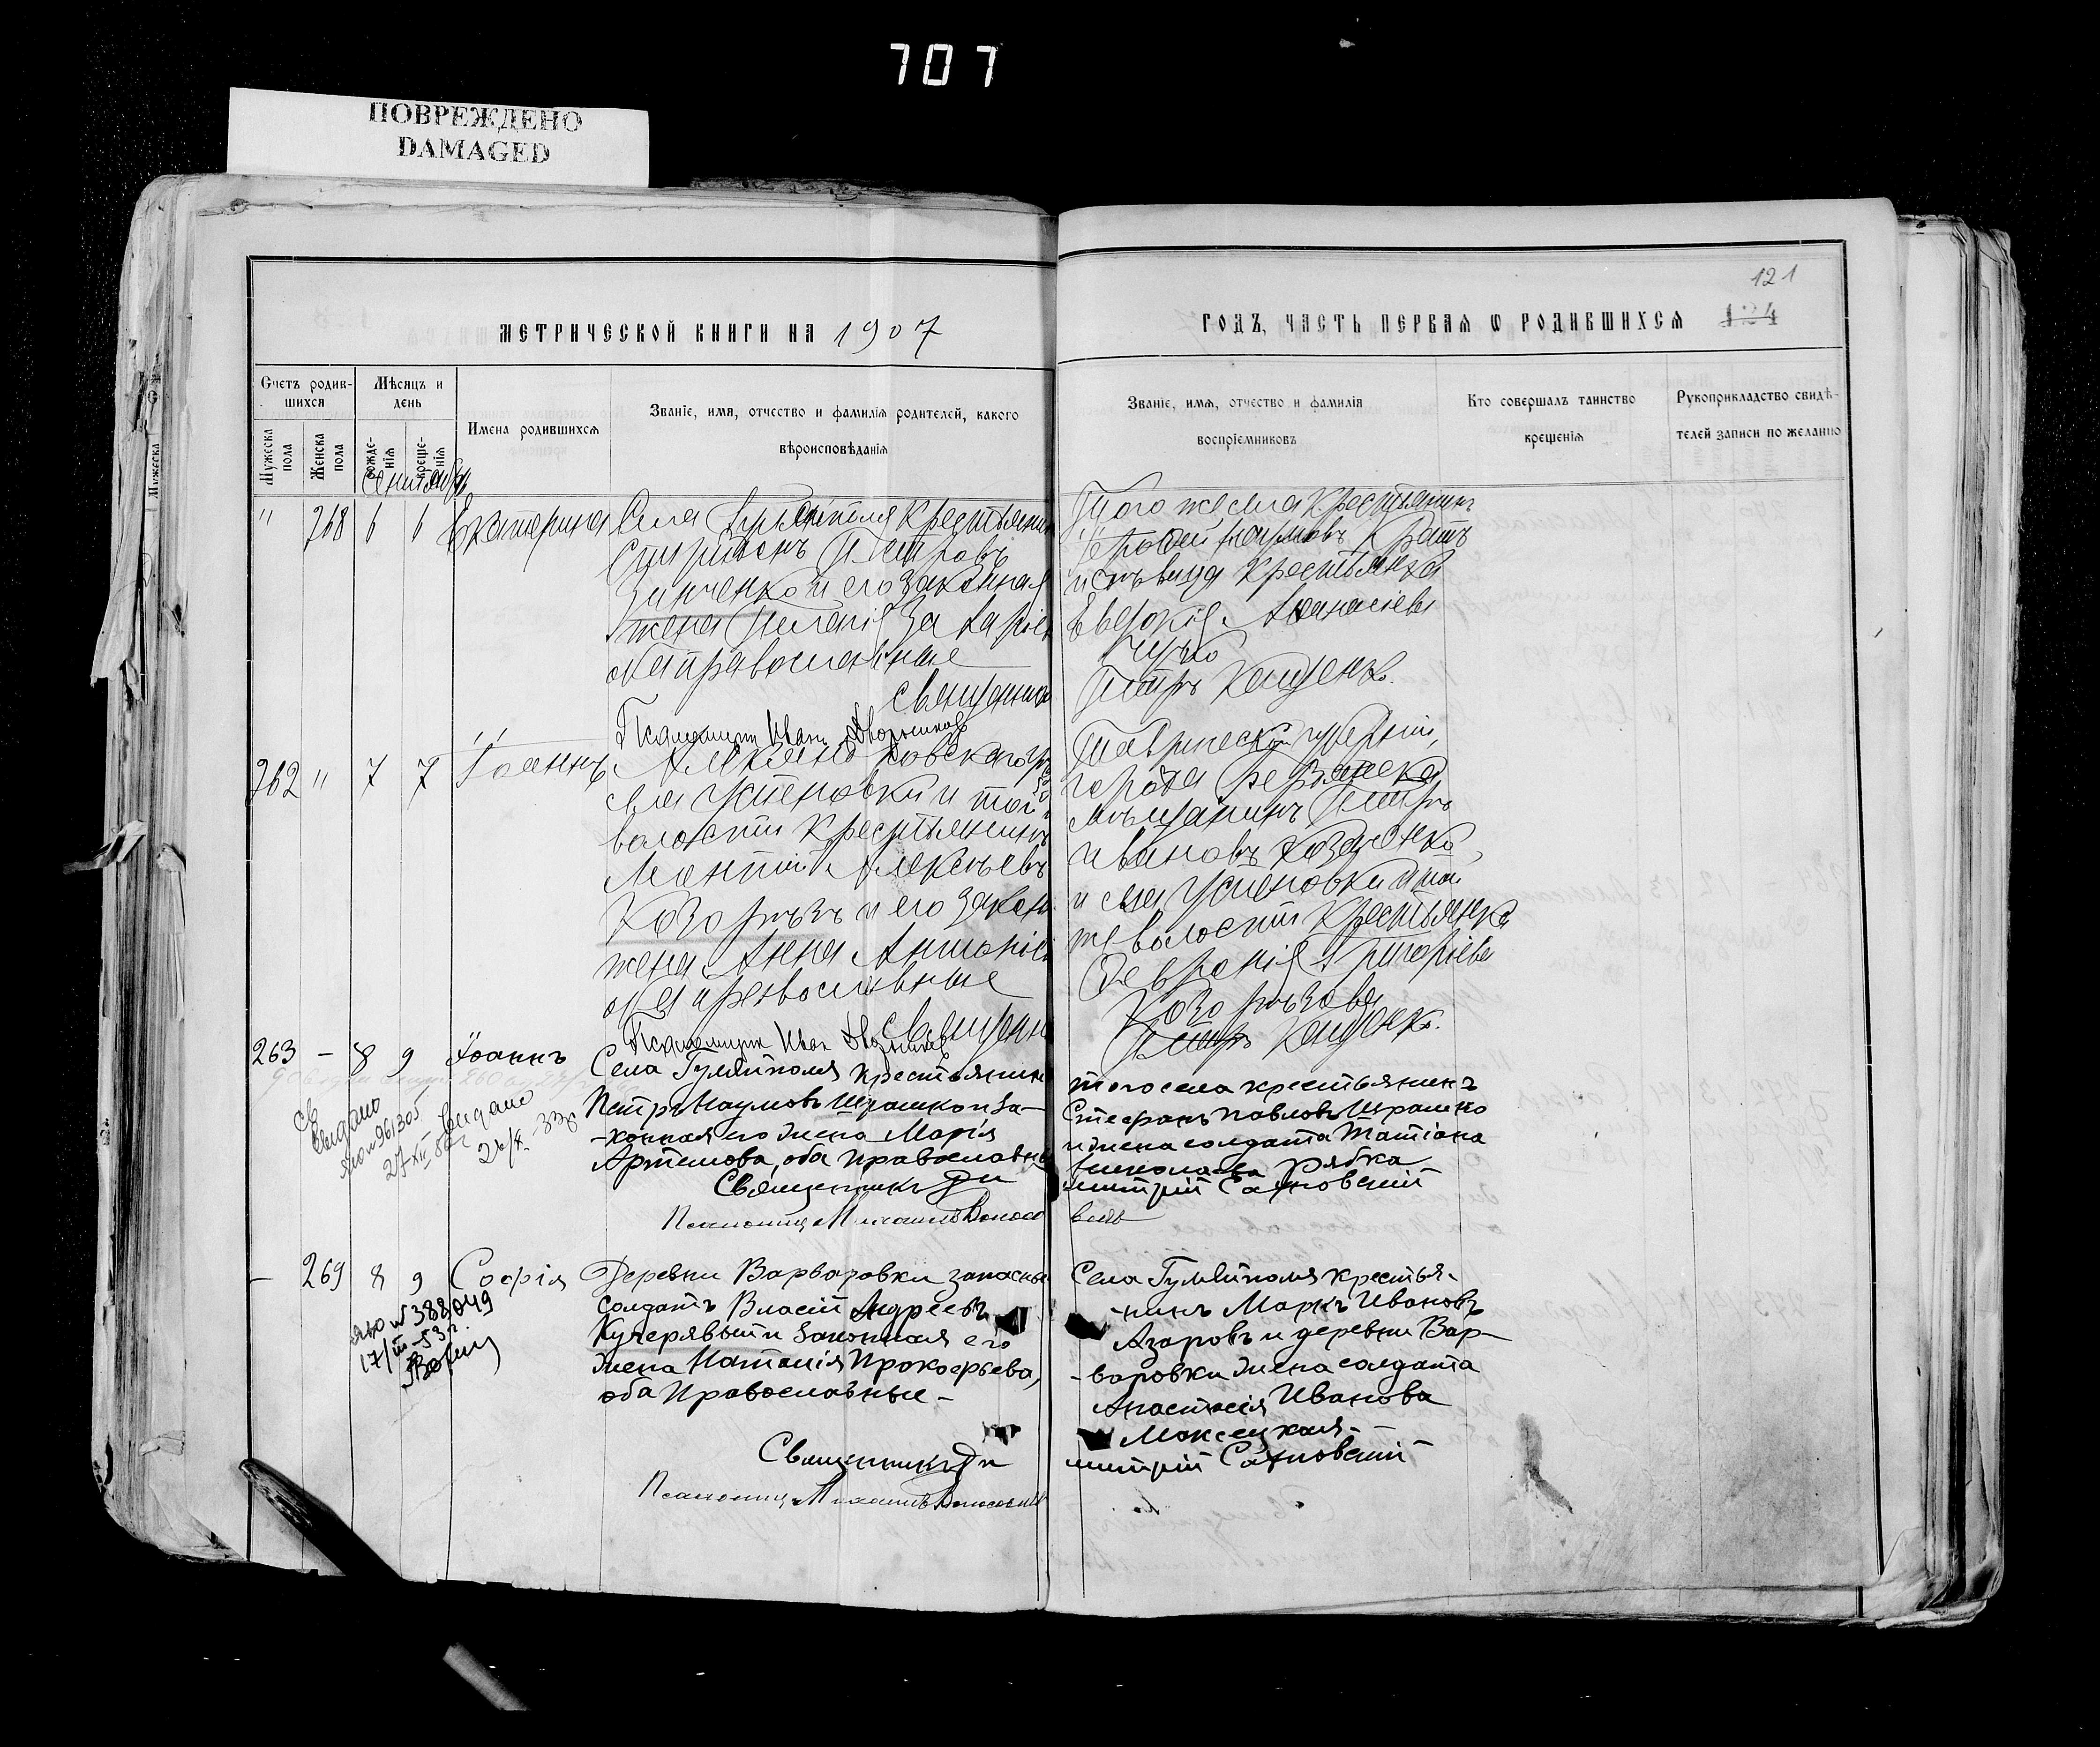 707
ПОВРЕЖДЕНО
DAMAGED
121
124
МЕТРИЧЕСКОЙ КНИГИ НА 1907
ГОДЪ, ЧАСТЬ ПЕРВАЯ Ѡ РОДИВШИХСЯ
Счетъ родив-
шихся
Мѣсяцъ и
день
Мужеска
пола
Женска
пола
рожде-
нія
креще-
нія
Имена родившихся
Званіе, имя, отчество и фамилія родителей, какого
вѣроисповѣданія
Званіе, имя, отчество и фамилія
воспріемниковъ
Кто совершалъ таинство
крещенія
Рукоприкладство свидѣ-
телей записи по желанію
Мужеска
" 268 6 6 Екатерина Села Гуляйполя крестьянин
Спиридонъ Петровъ
Зинченко и его законная
жена Пелагія Захаріев
оба православные
Священникъ
Псаломщик Иван Дворников
Того же села крестьянинъ
и дѣвица крестьянка
Евдокія Аѳанасіева
Петръ Кащенко.
262 " 7 7 Іоаннъ Александровскаго у
села Успеновки и той
волости крестьянинъ
Леонтій Алексѣевъ
Козорѣзъ и его закон
жена Анна Антоніев
оба православные
Священн
Псаломщик Иван Дворников
Таврической губерніи,
города Бердянска
мѣщанинъ Петръ
Ивановъ Козаченко,
и села Успеновки и той
же волости крестьянка
Февронія Григоріева
Козорѣзова
Петръ Кащенко.
263 – 8 9 Іоаннъ Села Гуляйполя крестьянин
Петръ Наумовъ Шрамко и за-
конная его жена Марія
Артемова, оба православны
Священникъ Ди
Псаломщ Михаилъ Волосо
того села крестьянинъ
Стефанъ Павловъ Шрамко
и жена солдата Татіана
Николаева Рябка
митрій Сахновскій
вичъ
Св
выдано
27 XII
выдано
26/X - 33г
– 269 8 9 Софія Деревни Варваровки запасны
солдатъ Власій Андреевъ
Кучерявый и законная его
жена Наталія Прокофьева,
оба Православные –
Священникъ Ди
Псаломщ Михаилъ Волосови
Села Гуляйполя крестья-
нинъ Маркъ Ивановъ
Азаровъ и деревни Вар-
-варовки жена солдата
Анастасія Иванова
Моксецкая –
митрій Сахновскій
ЯЮ № 388049
17/III-53г.